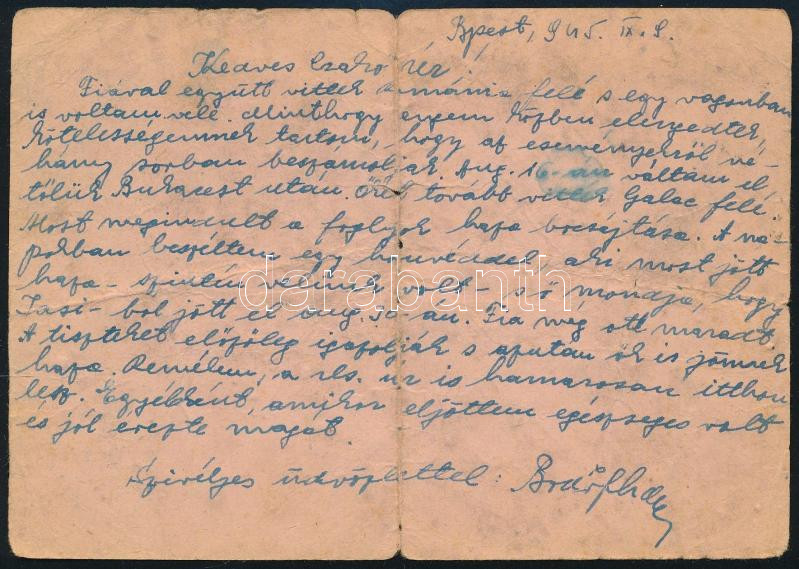 Bpest, 945. IX. 9.
Kedves Czakó
Fiával együtt vittek Románia felé s egy vagonban
is voltam vele. Minthogy engem közben elengedtek,
kötelességemnek tartom, hogy az eseményekről né-
hány sorban beszámoljak. Aug. 16-án váltam el
tőlük Bukarest után. Őket tovább vitték Galac felé.
Most megindult a foglyok haza bocsájtása. A na-
pokban beszéltem egy honvéddel, aki most jött
haza - szintén velünk volt - s ő mondja, hogy
Iasi-ból jött el aug. 30-án. Fia még ott maradt.
A tiszteket előzőleg igazolják s azután ők is jönnek
haza. Remélem, a úr is hamarosan itthon
lesz. Egyébként, amikor eljöttem egészséges volt
és jól érezte magát.
Szivélyes üdvözlettel:
darabanth